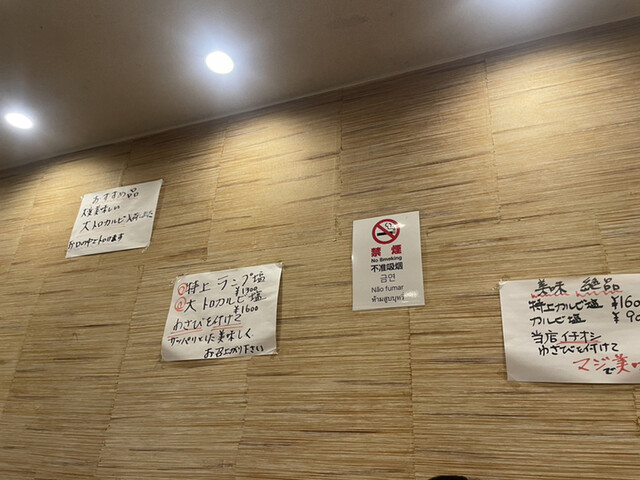 おすすめ品
大変美味しい
大トロカルビ入荷しました
お口の中でトロけます
特上ランプ塩
¥1300
大トロカルビ塩
¥1600
わさびを付けて
サッパリとした美味しく
お召上がり下さい
禁煙
No Smoking
不准吸烟
금연
Não fumar
ห้ามสูบบุหรี่
美味 絶品
特上カルビ塩 ¥160
カルビ塩 ¥90
当店イチオシ
わさびを付けて
マジで美